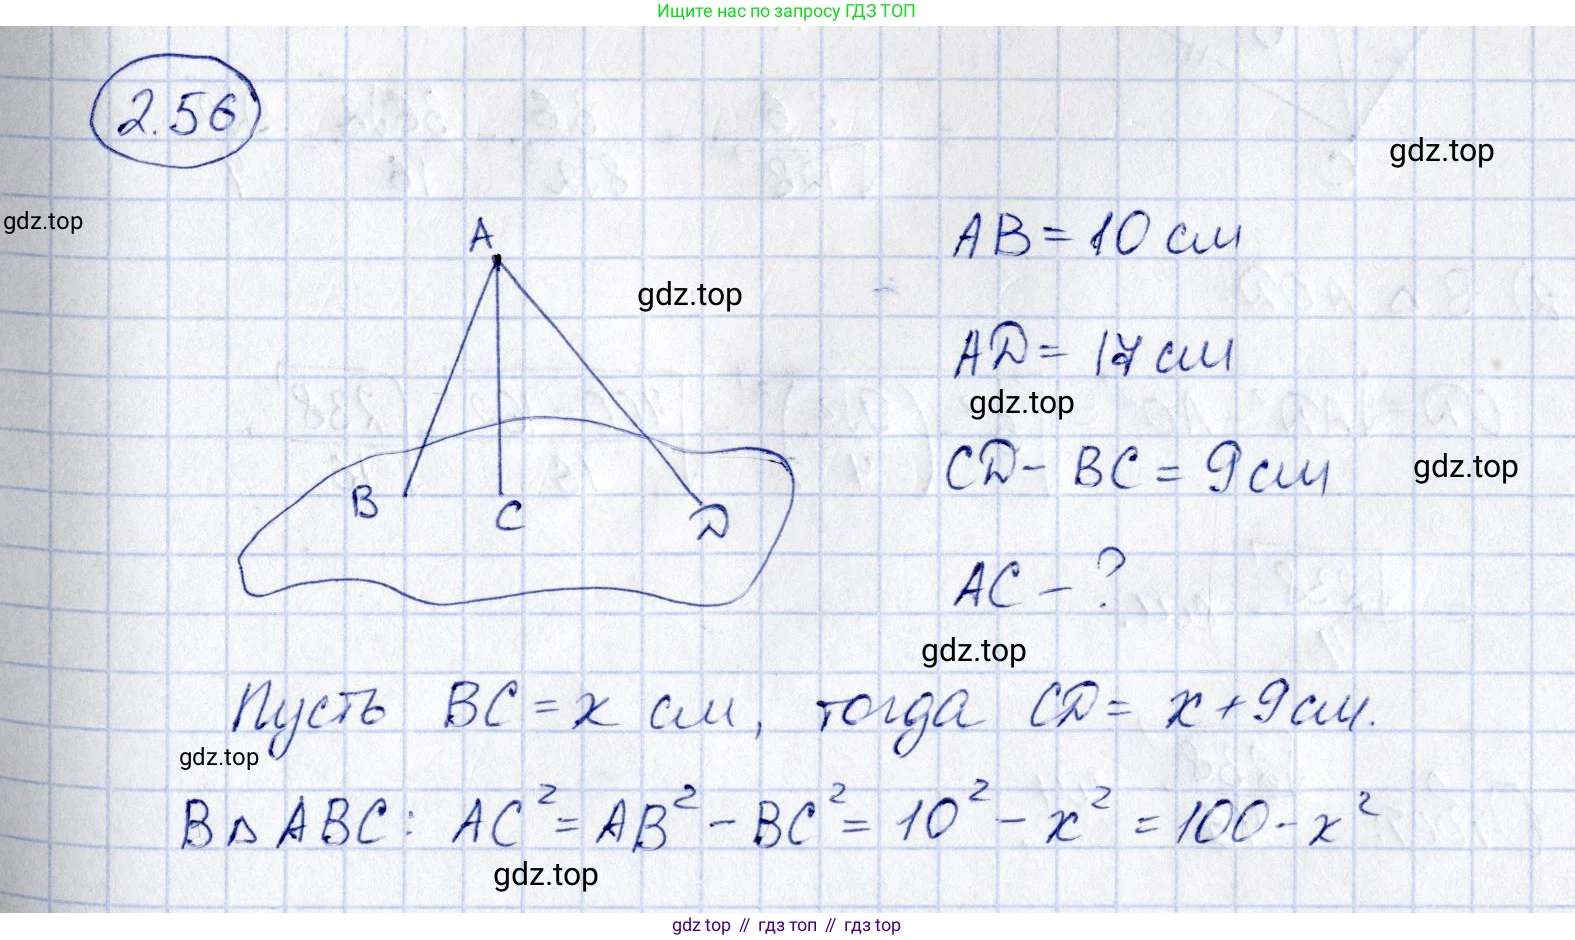 Ищите нас по запросу ГДЗ ТОП
2.56
gdz.top
gdz.top
A
AB = 10 см
gdz.top
AD = 17 см
gdz.top
CD - BC = 9 см
gdz.top
B
C
D
AC - ?
gdz.top
Пусть BC = x см, тогда CD = x + 9 см.
gdz.top
В △ ABC: AC² = AB² - BC² = 10² - x² = 100 - x²
gdz.top
gdz top // гдз топ // gdz top